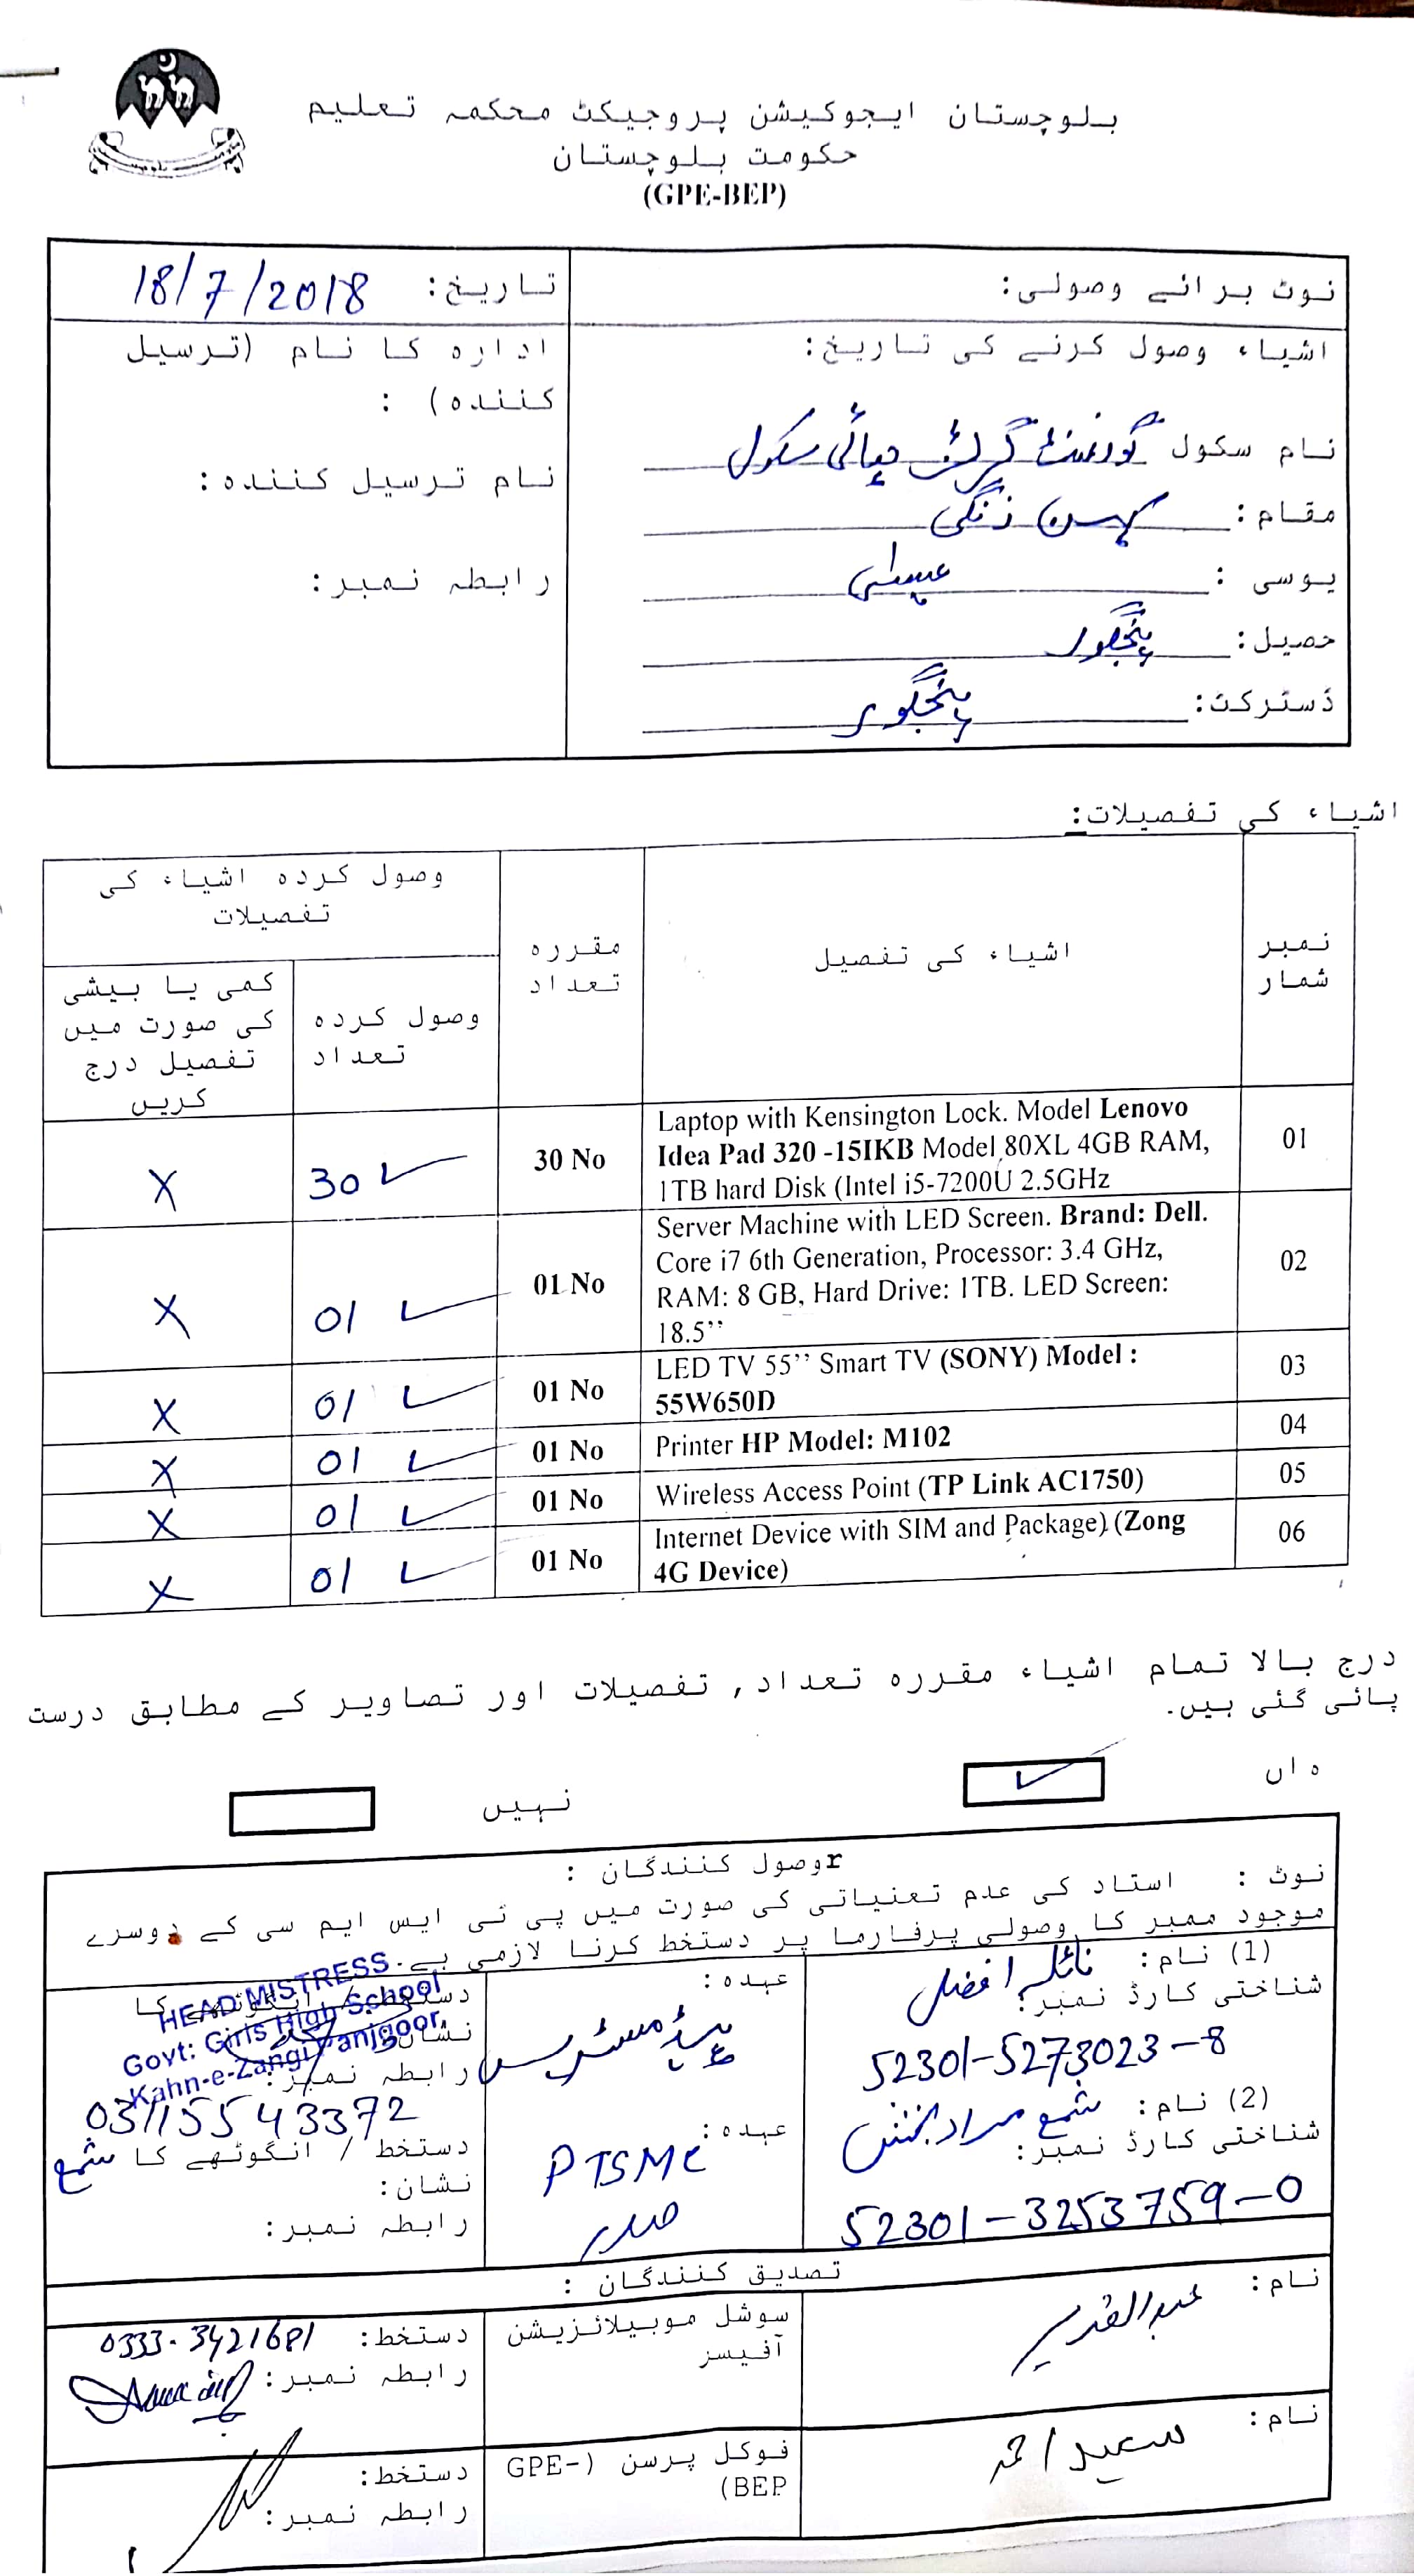 بلوچستان ایجوکیشن پروجیکٹ محکمہ تعلیم
حکومت بلوچستان
(GPE-BEP)
نوٹ برائے وصولی:
تاریخ: 18/7/2018
اشیاء وصول کرنے کی تاریخ:
نام سکول گورنمنٹ گرلز ہائی سکول
مقام: کہن زنگی
یوسی : عیسئی
حصیل: پنجگور
ڈسٹرکٹ: پنجگور
ادارہ کا نام (ترسیل
کنندہ) :
نام ترسیل کنندہ:
رابطہ نمبر:
اشیاء کی تفصیلات:
نمبر شمار
اشیاء کی تفصیل
مقررہ تعداد
وصول کردہ اشیاء کی تفصیلات
وصول کردہ تعداد
کمی یا بیشی کی صورت میں تفصیل درج کریں
01
Laptop with Kensington Lock. Model Lenovo
Idea Pad 320 -15IKB Model 80XL 4GB RAM,
1TB hard Disk (Intel i5-7200U 2.5GHz
30 No
30 ✓
X
02
Server Machine with LED Screen. Brand: Dell.
Core i7 6th Generation, Processor: 3.4 GHz,
RAM: 8 GB, Hard Drive: 1TB. LED Screen:
18.5’’
01 No
01 ✓
X
03
LED TV 55’’ Smart TV (SONY) Model :
55W650D
01 No
01 ✓
X
04
Printer HP Model: M102
01 No
01 ✓
X
05
Wireless Access Point (TP Link AC1750)
01 No
01 ✓
X
06
Internet Device with SIM and Package) (Zong
4G Device)
01 No
01 ✓
X
درج بالا تمام اشیاء مقررہ تعداد, تفصیلات اور تصاویر کے مطابق درست
پائی گئی ہیں.
ہاں ✓
نہیں
rوصول کنندگان :
نوٹ : استاد کی عدم تعنیاتی کی صورت میں پی ٹی ایس ایم سی کے دوسرے
موجود ممبر کا وصولی پرفارما پر دستخط کرنا لازمی ہے.
(1) نام: نائلہ افضل
شناختی کارڈ نمبر:
52301-5273023-8
عہدہ:
ہیڈ مسٹریس
دستخط / انگوٹھے کا
نشان:
رابطہ نمبر:
HEAD MISTRESS
Govt: Girls High School
Kahn-e-Zangi Panjgoor
03115543372
(2) نام: شمع مراد بخش
شناختی کارڈ نمبر:
52301-3253759-0
عہدہ:
PTSMC
صدر
دستخط / انگوٹھے کا شمع
نشان:
رابطہ نمبر:
تصدیق کنندگان :
نام: عبدالقدیر
سوشل موبیلائزیشن
آفیسر
دستخط: 0333-3421681
رابطہ نمبر:
نام: سعید احمد
فوکل پرسن (GPE-
BEP)
دستخط:
رابطہ نمبر: